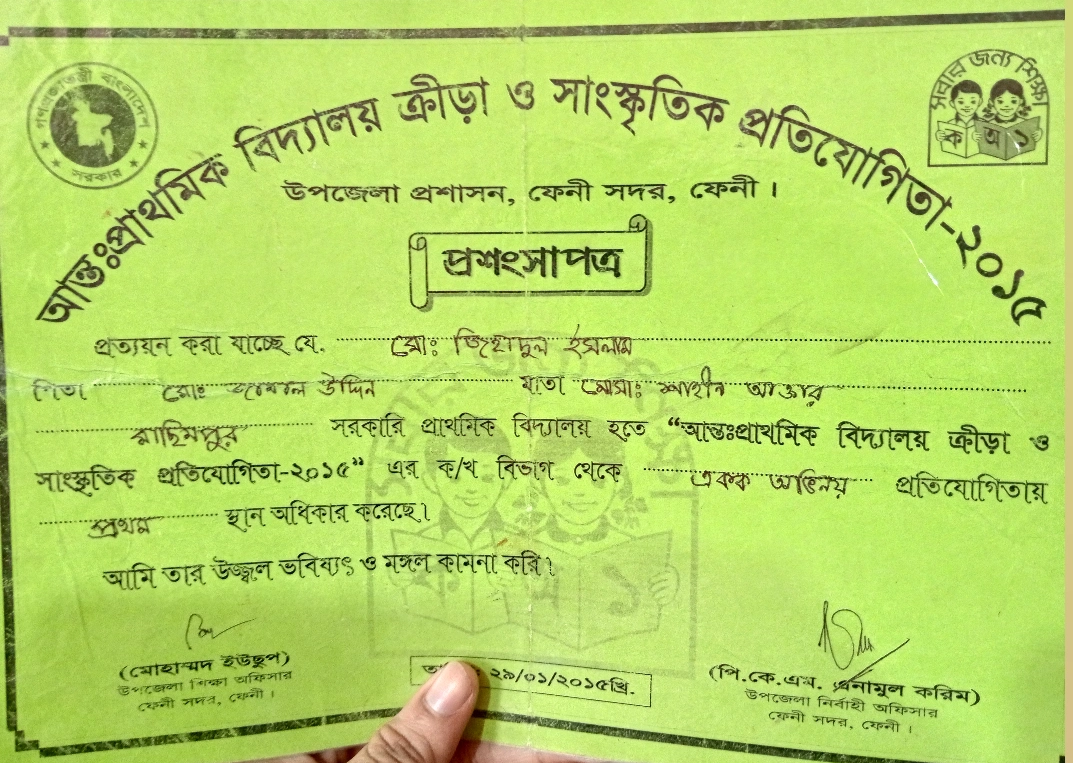 গণপ্রজাতন্ত্রী বাংলাদেশ
সরকার
সবার জন্য শিক্ষা
ক অ ১
আন্তঃপ্রাথমিক বিদ্যালয় ক্রীড়া ও সাংস্কৃতিক প্রতিযোগিতা-২০১৫
উপজেলা প্রশাসন, ফেনী সদর, ফেনী।
প্রশংসাপত্র
প্রত্যয়ন করা যাচ্ছে যে, মোঃ জিহাদুল ইসলাম
পিতা মোঃ জামাল উদ্দিন মাতা মোসাঃ শাহীন আক্তার
মাছিমপুর সরকারি প্রাথমিক বিদ্যালয় হতে “আন্তঃপ্রাথমিক বিদ্যালয় ক্রীড়া ও
সাংস্কৃতিক প্রতিযোগিতা-২০১৫” এর ক/খ বিভাগ থেকে একক অভিনয় প্রতিযোগিতায়
প্রথম স্থান অধিকার করেছে।
আমি তার উজ্জ্বল ভবিষ্যৎ ও মঙ্গল কামনা করি।
(মোহাম্মদ ইউছুপ)
উপজেলা শিক্ষা অফিসার
ফেনী সদর, ফেনী।
২৯/০১/২০১৫খ্রি.
(পি.কে.এম. এনামুল করিম)
উপজেলা নির্বাহী অফিসার
ফেনী সদর, ফেনী।